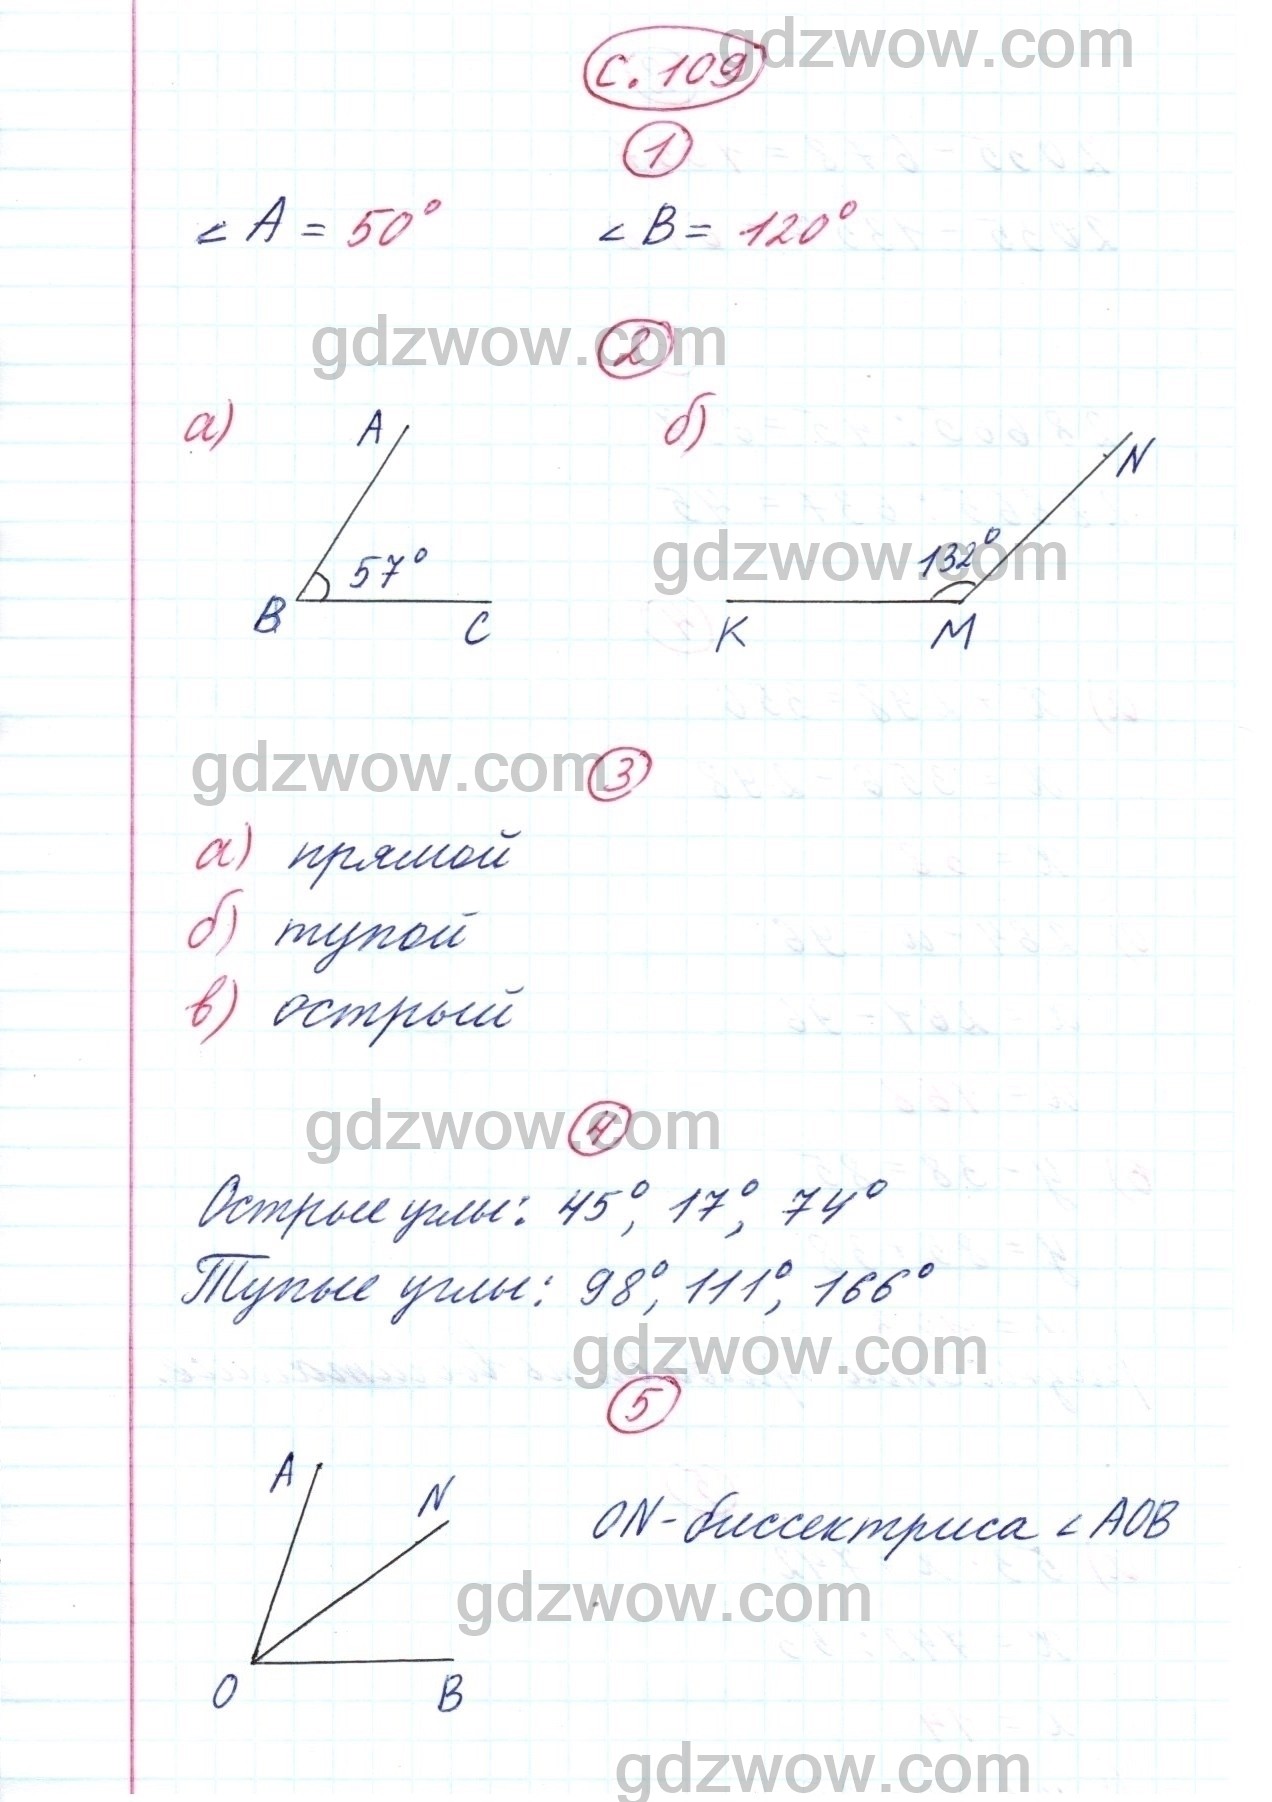 gdzwow.com
с. 109
1
∠A = 50° ∠B = 120°
gdzwow.com
2
а) A б) N
57° 132°
gdzwow.com
B C K M
gdzwow.com
3
а) прямой
б) тупой
в) острый
gdzwow.com
4
Острые углы: 45°, 17°, 74°
Тупые углы: 98°, 111°, 166°
gdzwow.com
5
A N
ON-биссектриса ∠AOB
gdzwow.com
O B
gdzwow.com